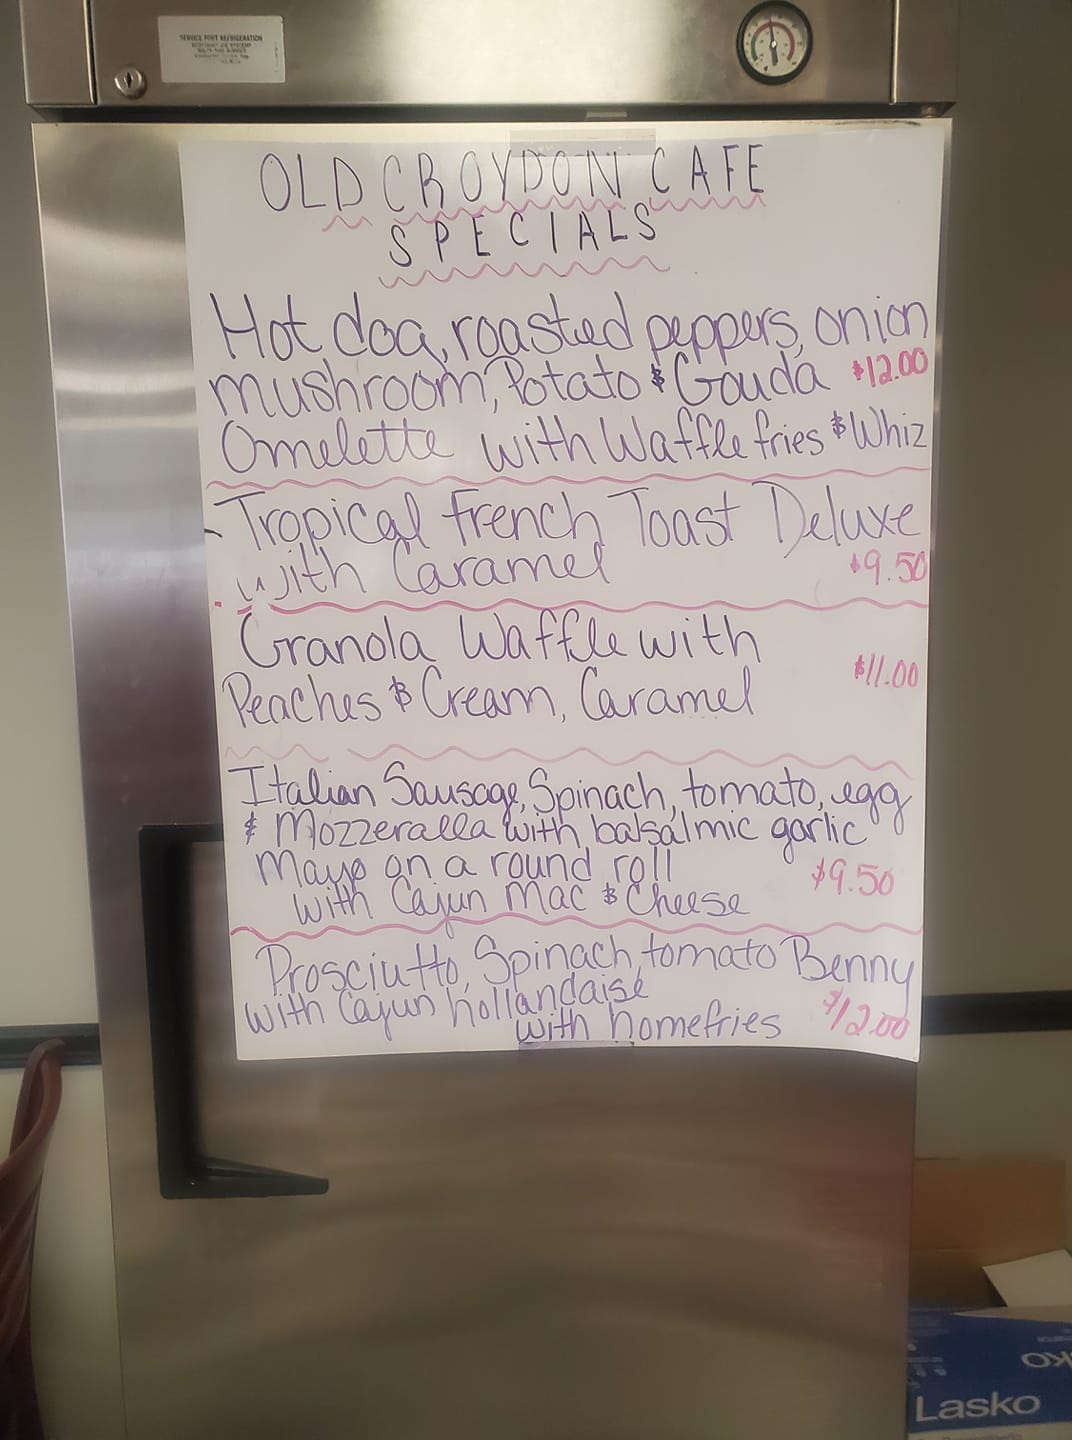 SERVICE POINT REFRIGERATION
OLD CROYDON CAFE
SPECIALS
Hot dog, roasted peppers, onion
mushroom, Potato & Gouda $12.00
Omelette with Waffle fries & Whiz
Tropical French Toast Deluxe
with Caramel $9.50
Granola Waffle with
Peaches & Cream, Caramel $11.00
Italian Sausage, Spinach, tomato, egg
& Mozzeralla with balsalmic garlic
Mayo on a round roll
with Cajun Mac & Cheese $9.50
Prosciutto, Spinach, tomato Benny
with Cajun hollandaise
with homefries $12.00
Lasko